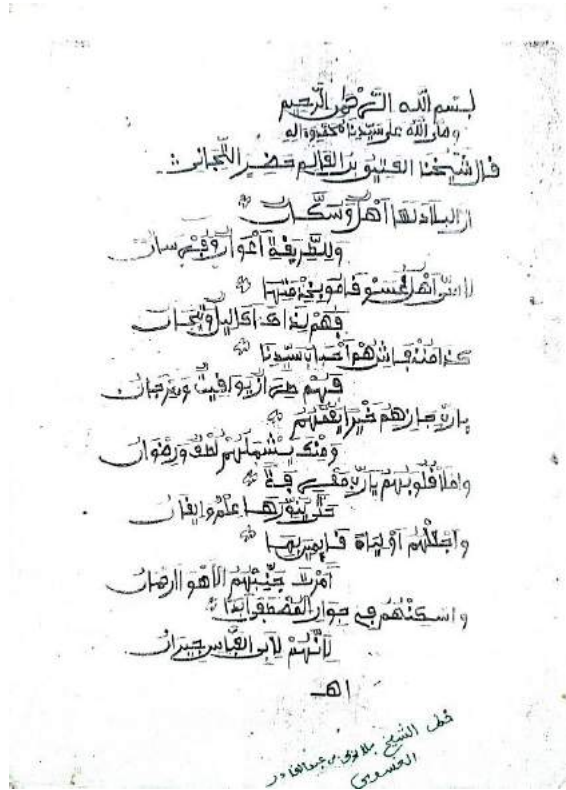 بسم الله الرحمن الرحيم
وصلى الله على سيدنا محمد وءاله
قال شيخنا الفقيه بن القاسم خضير التجاني :
إن البلاد لها أهل وسكان
وللطريقة أعوان وفرسان
لا سيّ أهل قاموا بخدمتها
فهم لذا هذا إكليل وتيجان
كذا هم أحباب سيدنا
فهم يواقيت ومرجان
يارب جازهم خيرا بفعلهم
ومنك يشملهم لطف ورضوان
واملأ قلوبهم يارب معرفة
حتى ينورها علم وإيقان
واجعلهم أولياء قايمين بما
أمرت جنبهم الأهوا
واسكنهم في جوار المصطفى أبدا
لأنهم لأبي العباس جيران
اهـ
خط الشيخ بن عبدالقادر